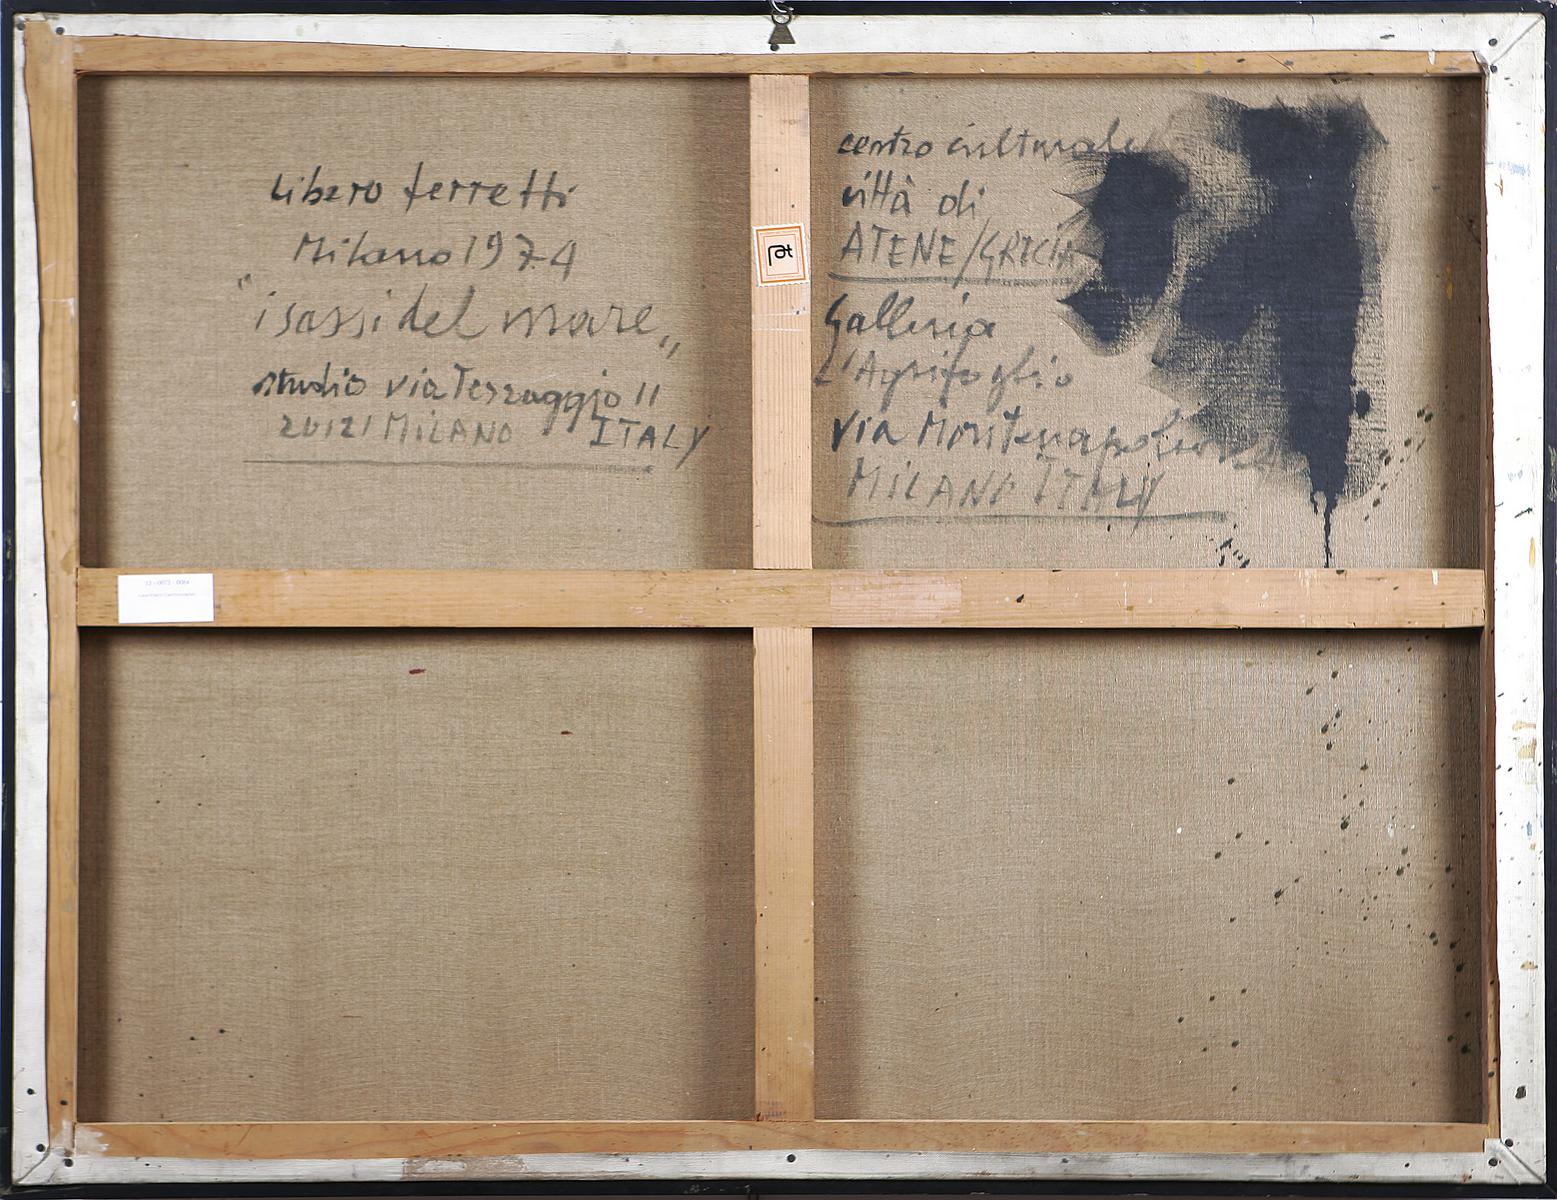 Libero ferretti
Milano 1974
"i sassi del mare„
studio via Terraggio 11
20121 MILANO ITALY
centro culturale
città di
ATENE/GRECIA
Galleria
L'Agrifoglio
via Montenapoleone
MILANO ITALY